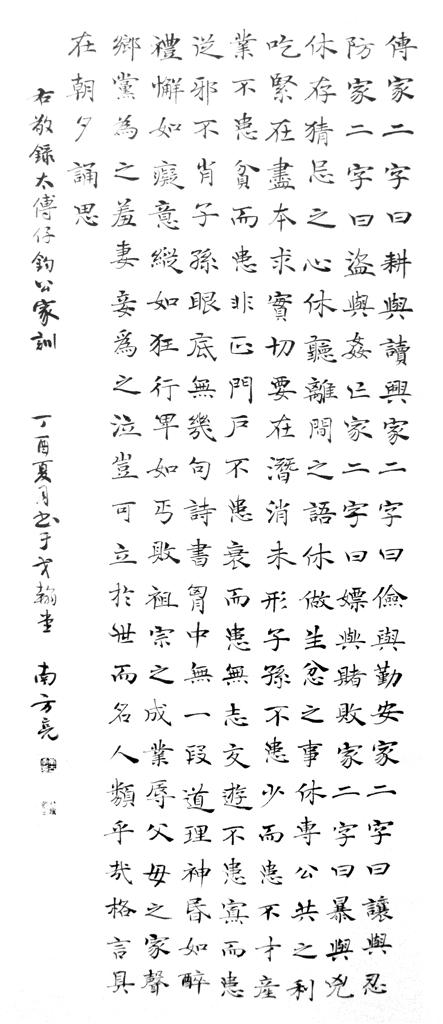 傳家二字曰耕與讀興家二字曰儉與勤安家二字曰讓與忍
防家二字曰盜與姦亡家二字曰嫖與賭敗家二字曰暴與兇
休存猜忌之心休聽離間之語休做生忿之事休專公共之利
吃緊在盡本求實切要在潛消未形子孫不患少而患不才產
業不患貧而患非正門戶不患衰而患無志交遊不患寡而患
從邪不肖子孫眼底無幾句詩書胷中無一段道理神昏如醉
禮懈如癡意縱如狂行卑如丐敗祖宗之成業辱父母之家聲
鄉黨為之羞妻妾爲之泣豈可立於世而名人類乎哉格言具
在朝夕誦思
右敬録太傅仔鈞公家訓 丁酉夏月书于 翰堂 南方亮